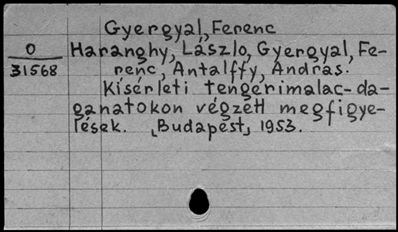 Gyergyal, Ferenc
O
31568
Haranghy, László, Gyergyal, Fe-
renc, Antalffy, András.
Kísérleti tengerimalac-da-
ganatokon végzett megfigye-
lések. ,Budapest, 1953.